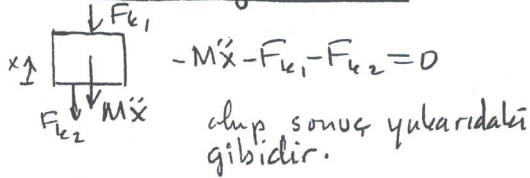 F_k₁
x
-Mẍ-F_k₁-F_k₂=0
F_k₂ Mẍ
olup sonuç yukarıdaki
gibidir.